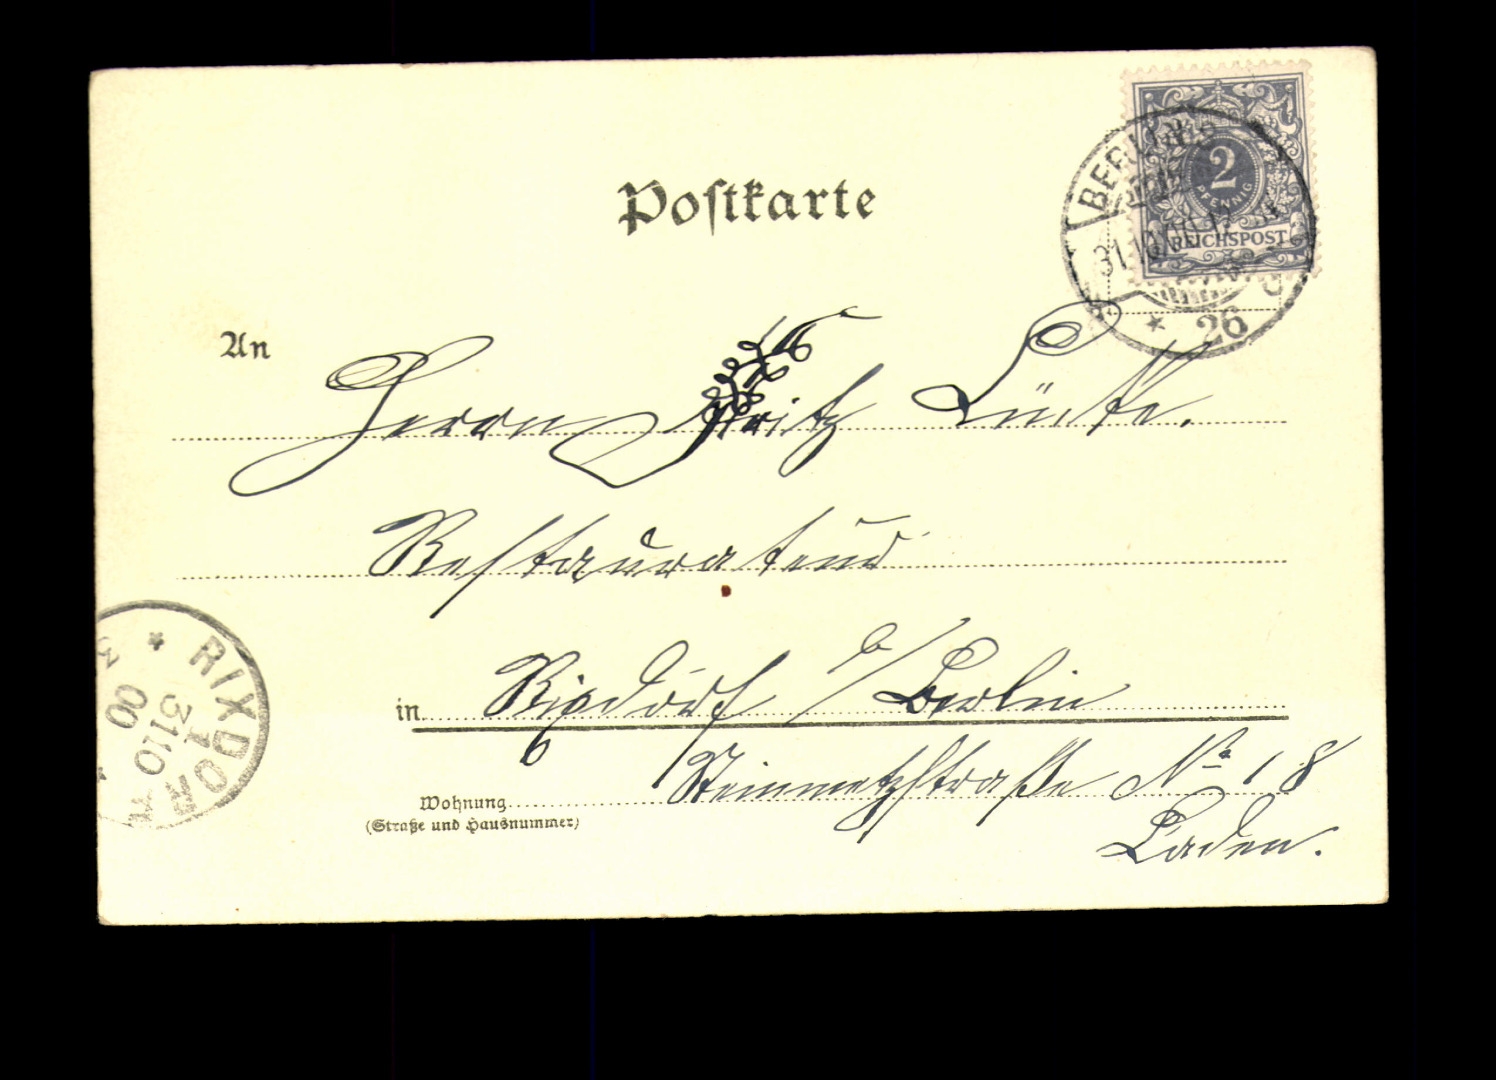 Postkarte
BERLIN
31.10.00.12
* 26
2
PFENNIG
REICHSPOST
An
Herrn Fritz
Restaurateur
in Rixdorf b/Berlin
Wohnung Steinmetzstraße No 18
(Straße und Hausnummer)
Laden.
RIXDORF
* 1
31 10
00